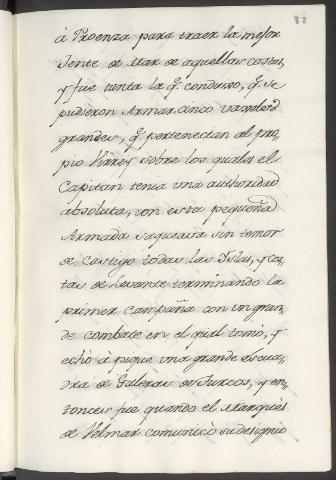 82
à Proenza para traer la mejor
Jente de Mar de aquellas costas,
y fue tanta la q.e conduxo, q.e se
pudieron Armar cinco vaxeles
grandes, q.e pertenectan al pro,
pio Virrey sobre los quales el
Capitan tenia una authoridad
absoluta, con esta pequeña
Armada saqueava sin temor
de Castigo todas las Islas, y cos,
tas de Levante terminando la
primer Campaña con un gran,
de combate en el qual tomò, y
echò à pique una grande escua,
dra de Galeras de Turcos, y en,
tonces fue quando el Marquès
de Velmar comunicò su designio